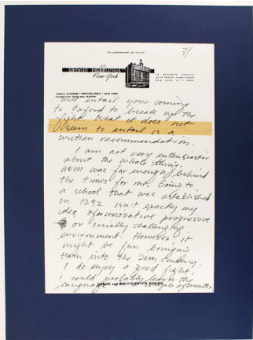 New York
3/
will entail your coming
to Oxford to break up the
fight. What it does not
seem to entail is a
written recommendation.
I am not very enthusiastic
about the whole thing.
was far enough behind
the times for me. Going to
a school that was established
in 1292 isn't exactly my
idea of innovative progressive
or socially challenging
environment. However it
might be fun bringing
them into the 20th century.
I do enjoy a good fight!
I could probably learn the
language